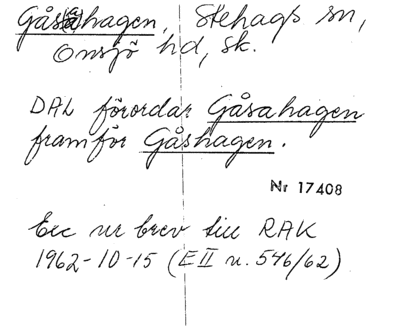 Gås(a)hagen, Stehags sn,
Onsjö hd, sk.
DAL förordar Gåsahagen
framför Gåshagen.
Nr 17408
Exc ur brev till RAK
1962-10-15 (E II u. 546/62)